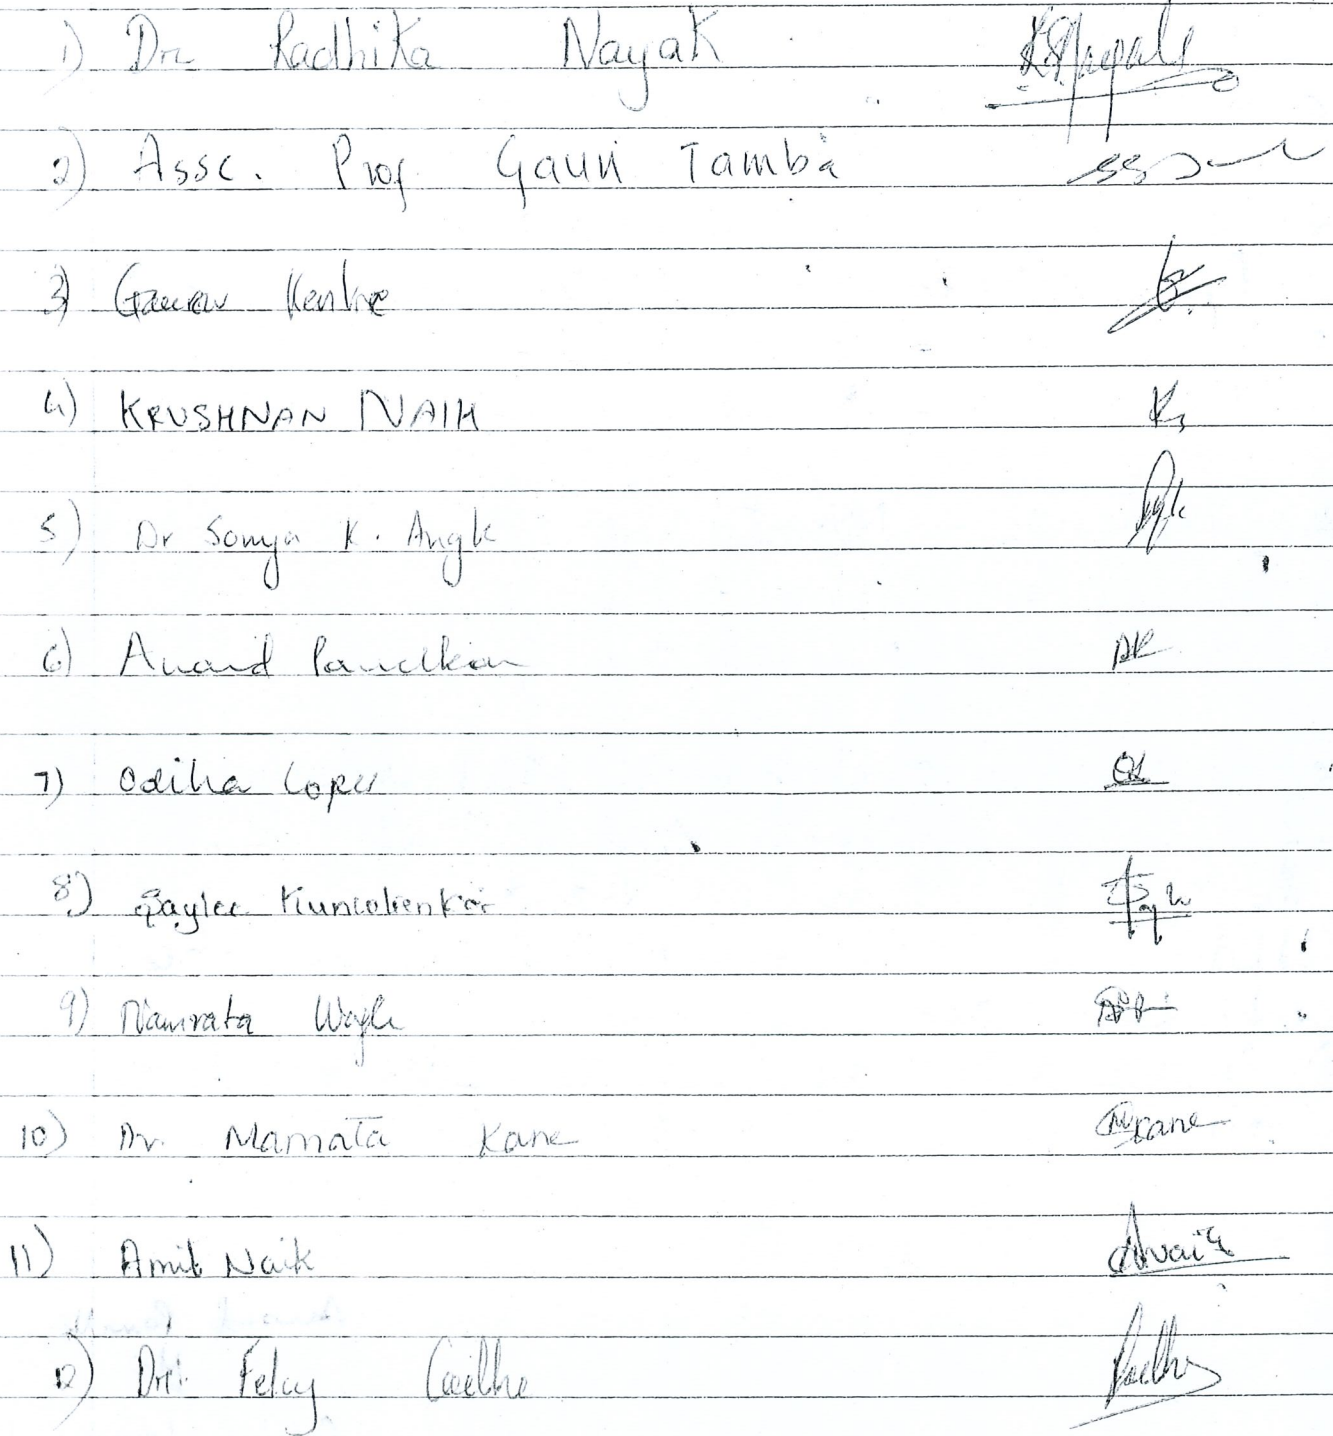 1) Dr Radhika Nayak
2) Assc. Prof Gauri Tamba
3) Gaurav Kenkre
4) KRUSHNAN NAIK
5) Dr Sonya K. Angle
6) Anand
7) Odilia Lopes
8) Saylee Kuncolienkar
9) Namrata Wagle
10) Dr. Mamata Kane Kane
11) Amit Naik Anaik
12) Dr. Felcy Coelho